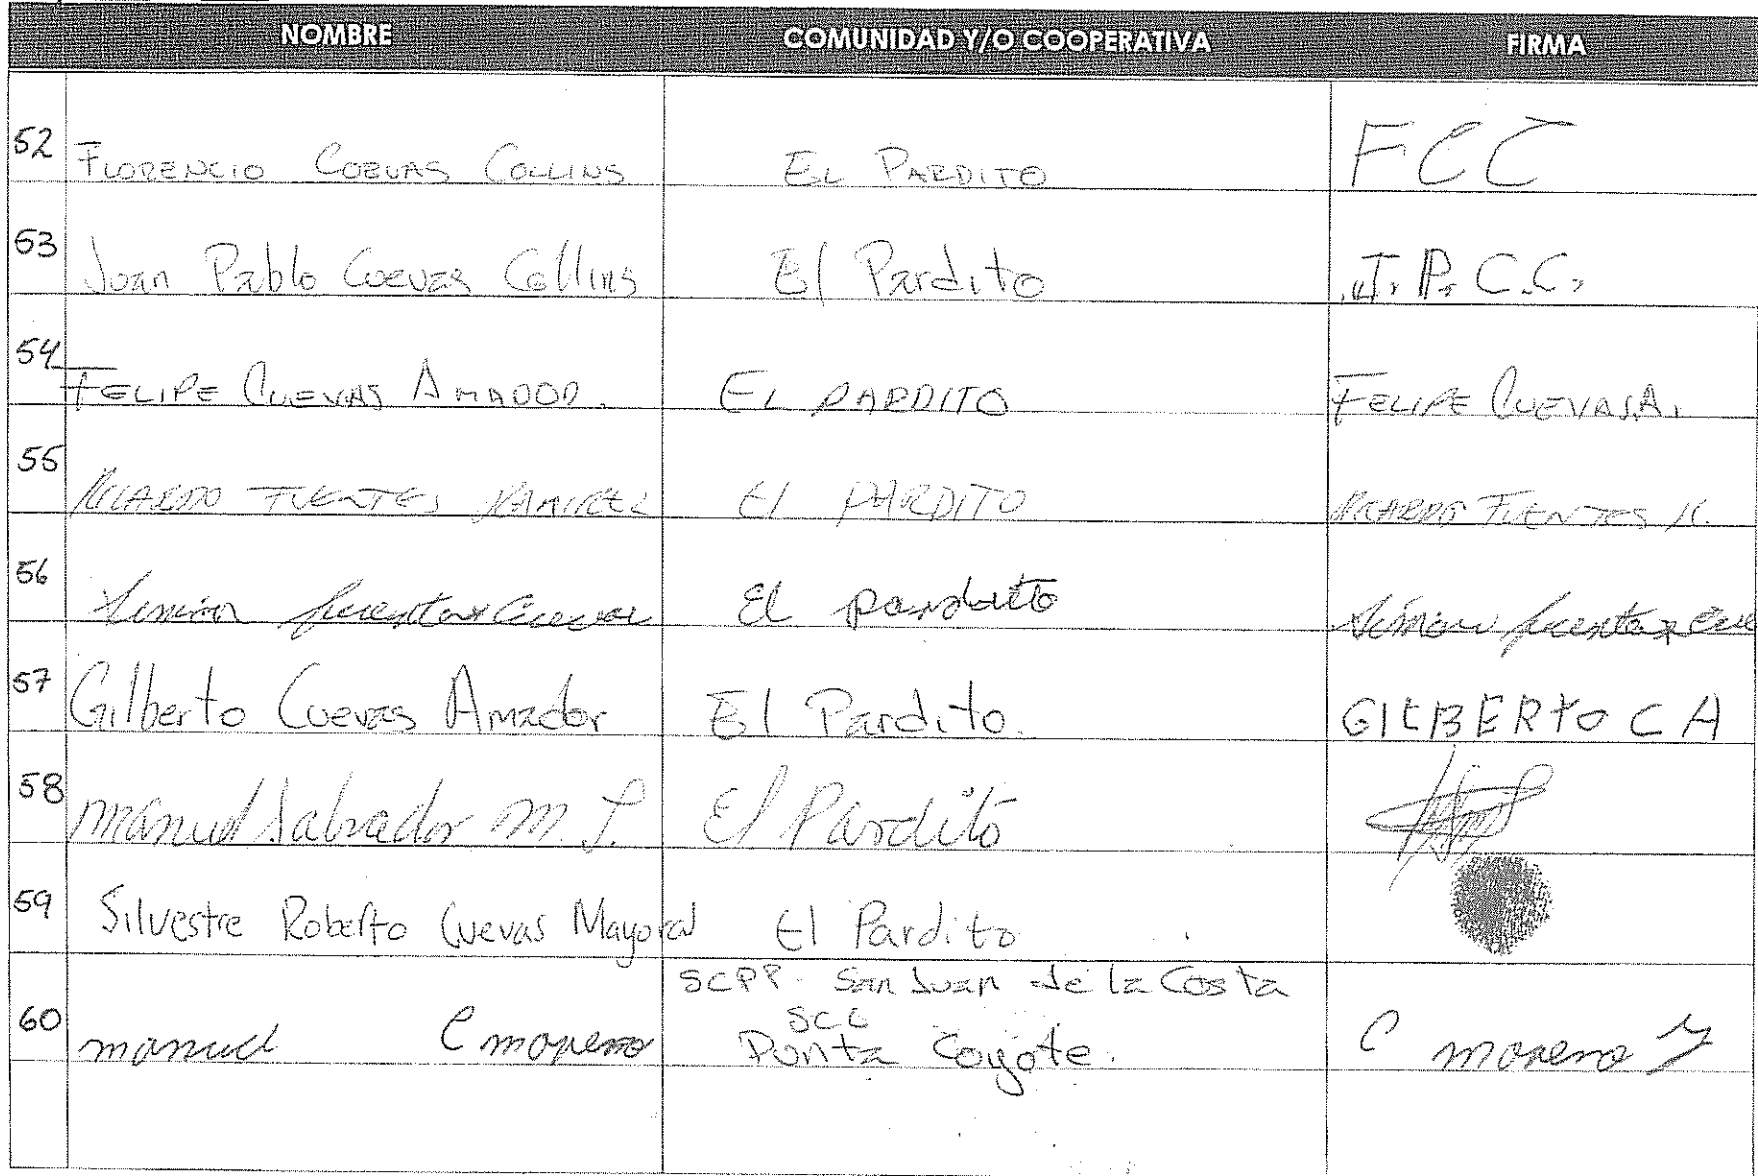 NOMBRE COMUNIDAD Y/O COOPERATIVA FIRMA
52 FLORENCIO COEVAS COLLINS EL PARDITO FCC
53 Juan Pablo Cuevas Collins El Pardito J.P.C.C.
54 FELIPE CUEVAS AMADOR. EL PARDITO FELIPE CUEVAS.A.
55 RICARDO FUENTES RAMIREZ El PARDITO RICARDO FUENTES R.
56 Simion fuentes Cuevas El pardito Simion fuentes
57 Gilberto Cuevas Amador El Pardito. GILBERTO C A
58 manuel Salvador m. L. El Pardito
59 Silvestre Roberto Cuevas Mayoral El Pardito
SCPP San Juan de la Costa
60 manuel C moreno SCC Punta Coyote. C moreno